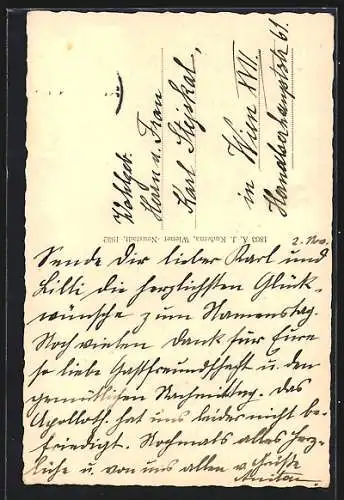 Wohlgeb.
Herrn u. Frau
Karl Stejskal,
in Wien XVII.
Hernalserhauptstr. 61.
1803 A. J. Kučerna, Wiener-Neustadt, 1932
2. Nov.
Sende Dir lieber Karl und
Lilli die herzlichsten Glück-
wünsche zum Namenstag.
Noch vielen Dank für Eure
so liebe Gastfreundschaft u. den
gemütlichen Nachmittag. Das
Apolloth. hat uns leider nicht be-
friedigt. Nochmals alles herz-
liche u. von uns allen v. Grüße